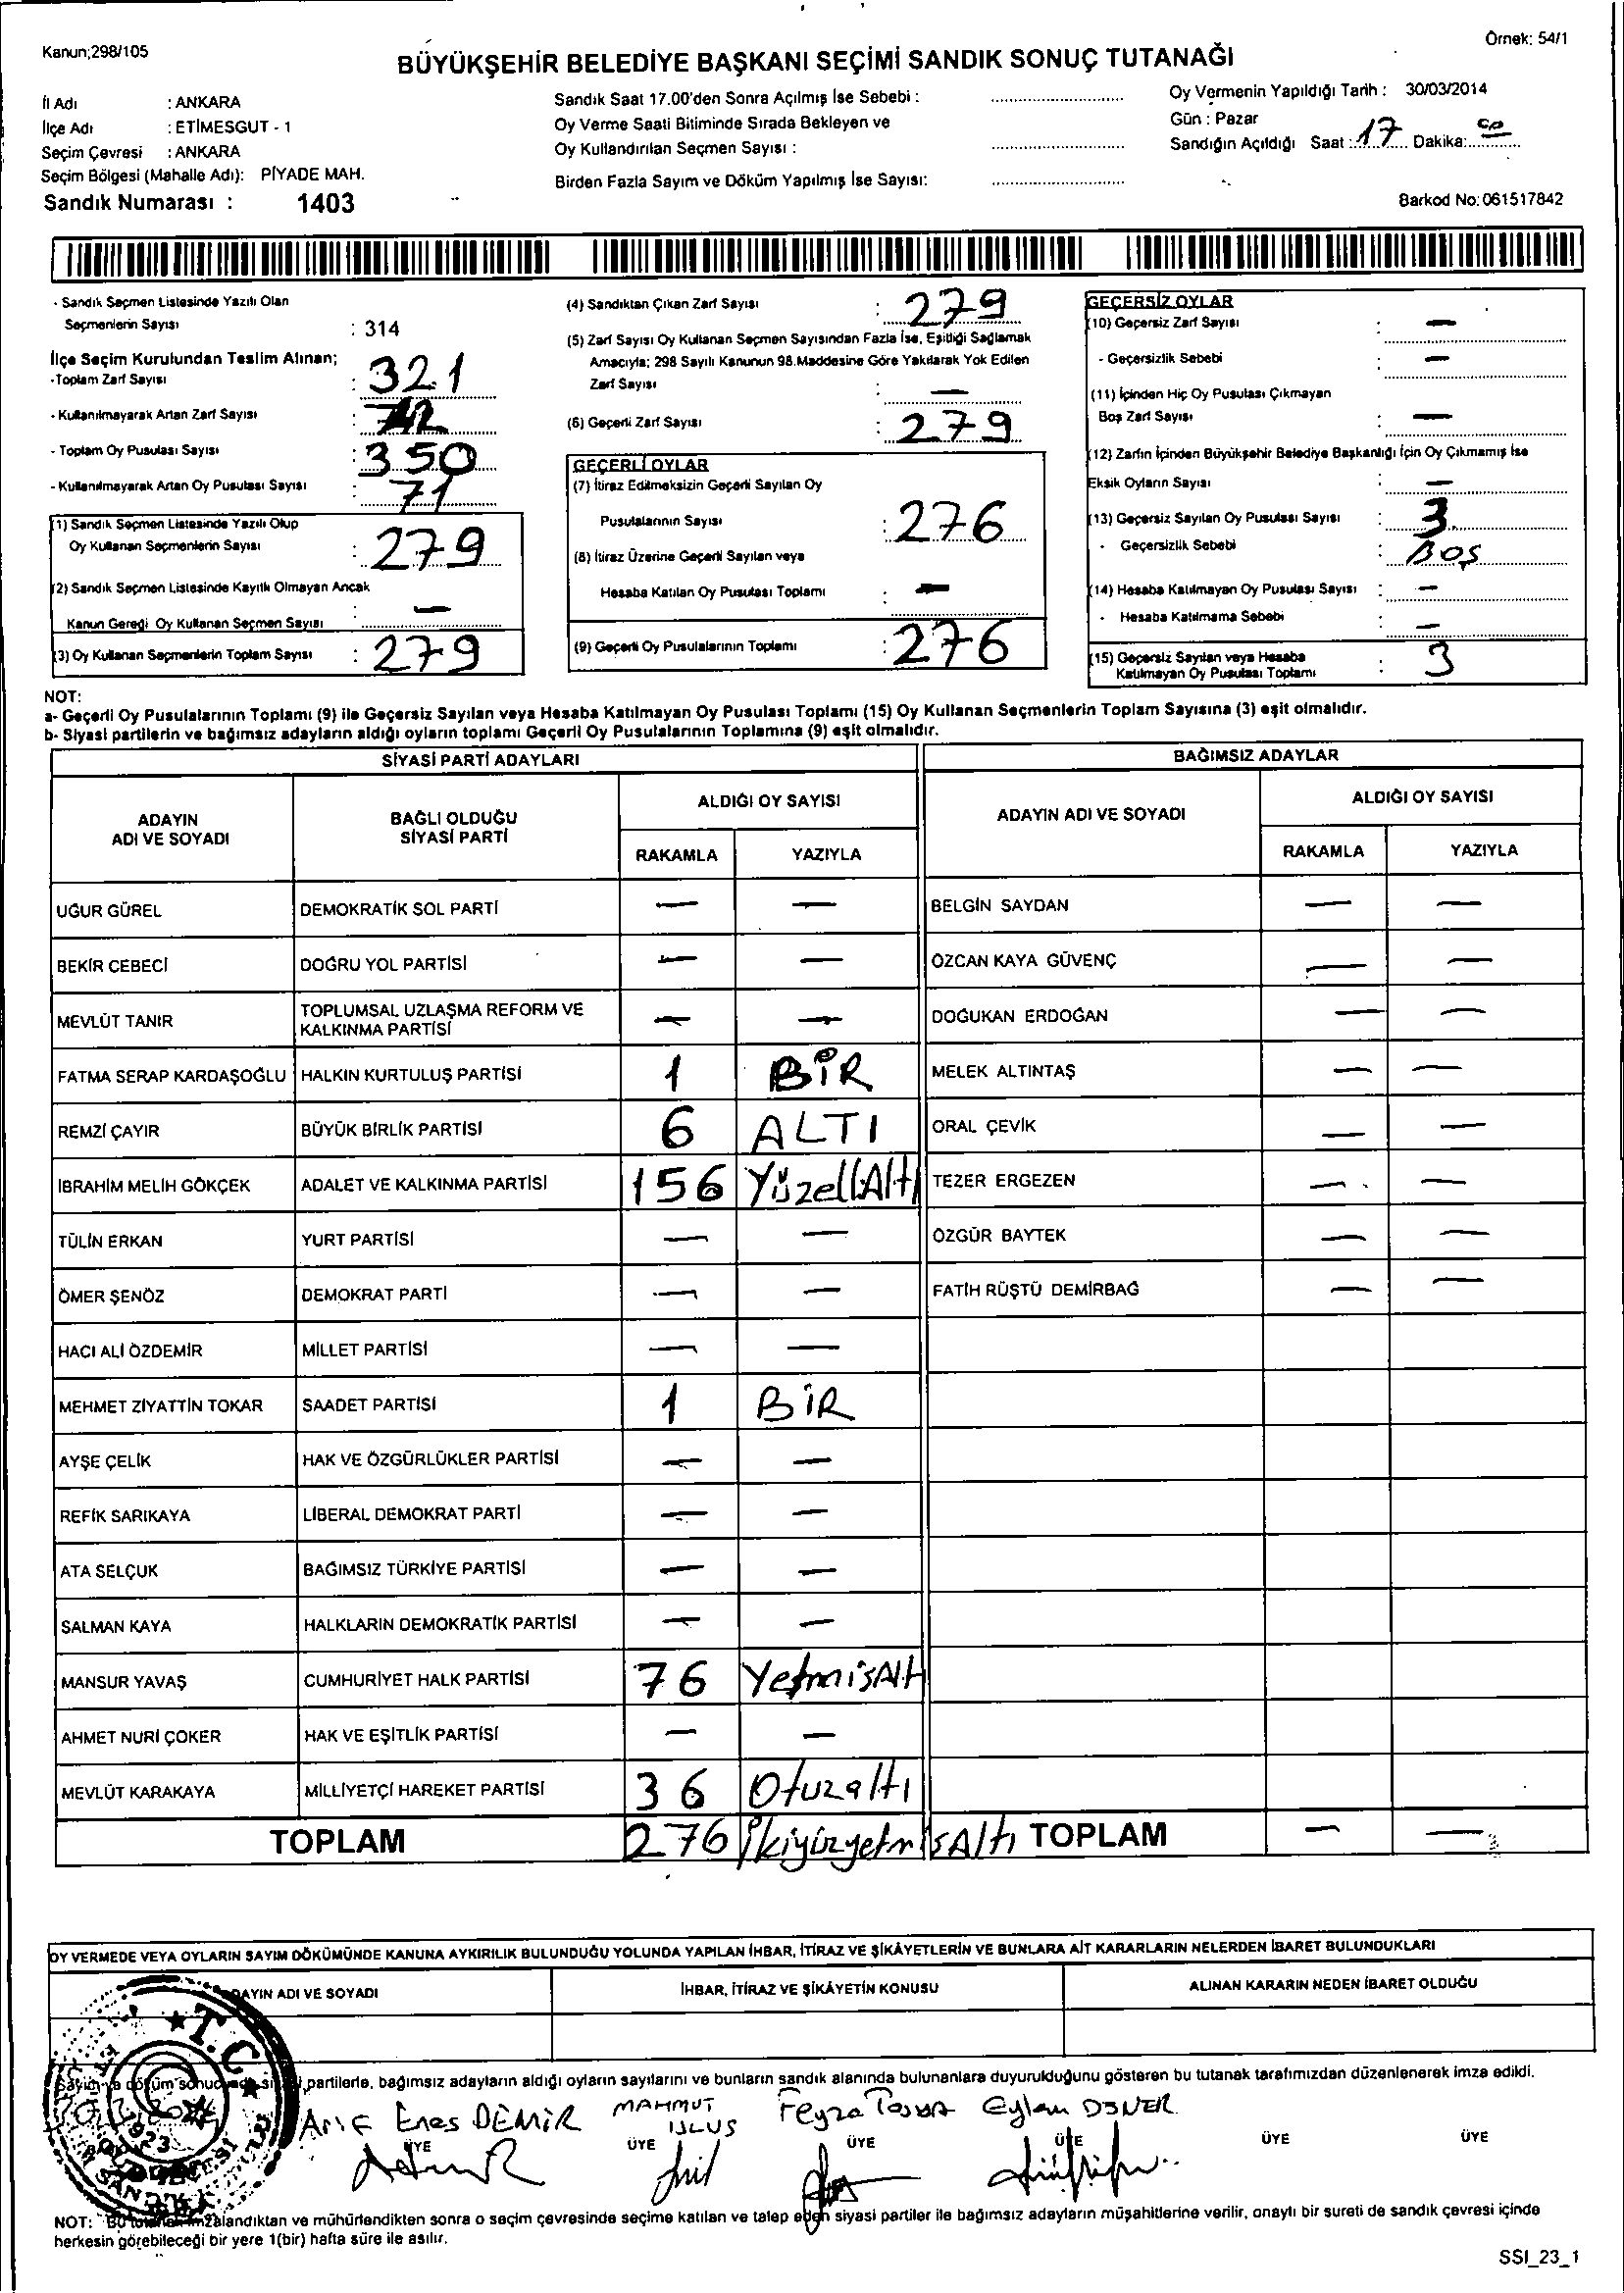 Kanun;298/105
Örnek: 54/1
BÜYÜKŞEHİR BELEDİYE BAŞKANI SEÇİMİ SANDIK SONUÇ TUTANAĞI
İl Adı : ANKARA
İlçe Adı : ETİMESGUT - 1
Seçim Çevresi : ANKARA
Seçim Bölgesi (Mahalle Adı): PİYADE MAH.
Sandık Numarası : 1403
Sandık Saat 17.00'den Sonra Açılmış İse Sebebi :
Oy Verme Saati Bitiminde Sırada Bekleyen ve
Oy Kullandırılan Seçmen Sayısı :
Birden Fazla Sayım ve Döküm Yapılmış İse Sayısı:
Oy Vermenin Yapıldığı Tarih : 30/03/2014
Gün : Pazar
Sandığın Açıldığı Saat : 17 Dakika:
Barkod No: 061517842
- Sandık Seçmen Listesinde Yazılı Olan
Seçmenlerin Sayısı : 314
İlçe Seçim Kurulundan Teslim Alınan;
-Toplam Zarf Sayısı : 321
- Kullanılmayarak Artan Zarf Sayısı :
- Toplam Oy Pusulası Sayısı : 350
- Kullanılmayarak Artan Oy Pusulası Sayısı : 71
(1) Sandık Seçmen Listesinde Yazılı Olup
Oy Kullanan Seçmenlerin Sayısı : 279
(2) Sandık Seçmen Listesinde Kayıtlı Olmayan Ancak
Kanun Gereği Oy Kullanan Seçmen Sayısı : —
(3) Oy Kullanan Seçmenlerin Toplam Sayısı : 279
(4) Sandıktan Çıkan Zarf Sayısı : 279
(5) Zarf Sayısı Oy Kullanan Seçmen Sayısından Fazla İse, Eşitliği Sağlamak
Amacıyla; 298 Sayılı Kanunun 98.Maddesine Göre Yakılarak Yok Edilen
Zarf Sayısı : —
(6) Geçerli Zarf Sayısı : 279
GEÇERLİ OYLAR
(7) İtiraz Edilmeksizin Geçerli Sayılan Oy
Pusulalarının Sayısı : 276
(8) İtiraz Üzerine Geçerli Sayılan veya
Hesaba Katılan Oy Pusulası Toplamı : —
(9) Geçerli Oy Pusulalarının Toplamı : 276
GEÇERSİZ OYLAR
(10) Geçersiz Zarf Sayısı : —
- Geçersizlik Sebebi : —
(11) İçinden Hiç Oy Pusulası Çıkmayan
Boş Zarf Sayısı : —
(12) Zarfın İçinden Büyükşehir Belediye Başkanlığı İçin Oy Çıkmamış İse
Eksik Oyların Sayısı : —
(13) Geçersiz Sayılan Oy Pusulası Sayısı : 3
- Geçersizlik Sebebi : BOŞ
(14) Hesaba Katılmayan Oy Pusulası Sayısı : —
- Hesaba Katılmama Sebebi : —
(15) Geçersiz Sayılan veya Hesaba
Katılmayan Oy Pusulası Toplamı : 3
NOT:
a- Geçerli Oy Pusulalarının Toplamı (9) ile Geçersiz Sayılan veya Hesaba Katılmayan Oy Pusulası Toplamı (15) Oy Kullanan Seçmenlerin Toplam Sayısına (3) eşit olmalıdır.
b- Siyasi partilerin ve bağımsız adayların aldığı oyların toplamı Geçerli Oy Pusulalarının Toplamına (9) eşit olmalıdır.
SİYASİ PARTİ ADAYLARI BAĞIMSIZ ADAYLAR
ADAYIN
ADI VE SOYADI
BAĞLI OLDUĞU
SİYASİ PARTİ
ALDIĞI OY SAYISI
RAKAMLA YAZIYLA
ADAYIN ADI VE SOYADI
ALDIĞI OY SAYISI
RAKAMLA YAZIYLA
UĞUR GÜREL DEMOKRATİK SOL PARTİ — — BELGİN SAYDAN — —
BEKİR CEBECİ DOĞRU YOL PARTİSİ — — ÖZCAN KAYA GÜVENÇ — —
MEVLÜT TANIR TOPLUMSAL UZLAŞMA REFORM VE
KALKINMA PARTİSİ — — DOĞUKAN ERDOĞAN — —
FATMA SERAP KARDAŞOĞLU HALKIN KURTULUŞ PARTİSİ 1 BİR MELEK ALTINTAŞ — —
REMZİ ÇAYIR BÜYÜK BİRLİK PARTİSİ 6 ALTI ORAL ÇEVİK — —
İBRAHİM MELİH GÖKÇEK ADALET VE KALKINMA PARTİSİ 156 YüzellAltı TEZER ERGEZEN — —
TÜLİN ERKAN YURT PARTİSİ — — ÖZGÜR BAYTEK — —
ÖMER ŞENÖZ DEMOKRAT PARTİ — — FATİH RÜŞTÜ DEMİRBAĞ — —
HACI ALİ ÖZDEMİR MİLLET PARTİSİ — —
MEHMET ZİYATTİN TOKAR SAADET PARTİSİ 1 BİR
AYŞE ÇELİK HAK VE ÖZGÜRLÜKLER PARTİSİ — —
REFİK SARIKAYA LİBERAL DEMOKRAT PARTİ — —
ATA SELÇUK BAĞIMSIZ TÜRKİYE PARTİSİ — —
SALMAN KAYA HALKLARIN DEMOKRATİK PARTİSİ — —
MANSUR YAVAŞ CUMHURİYET HALK PARTİSİ 76 YetmisAltı
AHMET NURİ ÇOKER HAK VE EŞİTLİK PARTİSİ — —
MEVLÜT KARAKAYA MİLLİYETÇİ HAREKET PARTİSİ 36 Otuzaltı
TOPLAM 276 İkiyüzyetmisAltı TOPLAM — —
OY VERMEDE VEYA OYLARIN SAYIM DÖKÜMÜNDE KANUNA AYKIRILIK BULUNDUĞU YOLUNDA YAPILAN İHBAR, İTİRAZ VE ŞİKÂYETLERİN VE BUNLARA AİT KARARLARIN NELERDEN İBARET BULUNDUKLARI
ADAYIN ADI VE SOYADI İHBAR, İTİRAZ VE ŞİKÂYETİN KONUSU ALINAN KARARIN NEDEN İBARET OLDUĞU
T.C.
partilerle, bağımsız adayların aldığı oyların sayılarını ve bunların sandık alanında bulunanlara duyurulduğunu gösteren bu tutanak tarafımızdan düzenlenerek imza edildi.
Arif Enes DEMİR MAHMUT Feyza Eylem DÖNER
ULUS
ÜYE ÜYE ÜYE ÜYE ÜYE ÜYE
NOT: Bu tutanak imzalandıktan ve mühürlendikten sonra o seçim çevresinde seçime katılan ve talep eden siyasi partiler ile bağımsız adayların müşahitlerine verilir, onaylı bir sureti de sandık çevresi içinde
herkesin görebileceği bir yere 1(bir) hafta süre ile asılır.
SSI_23_1